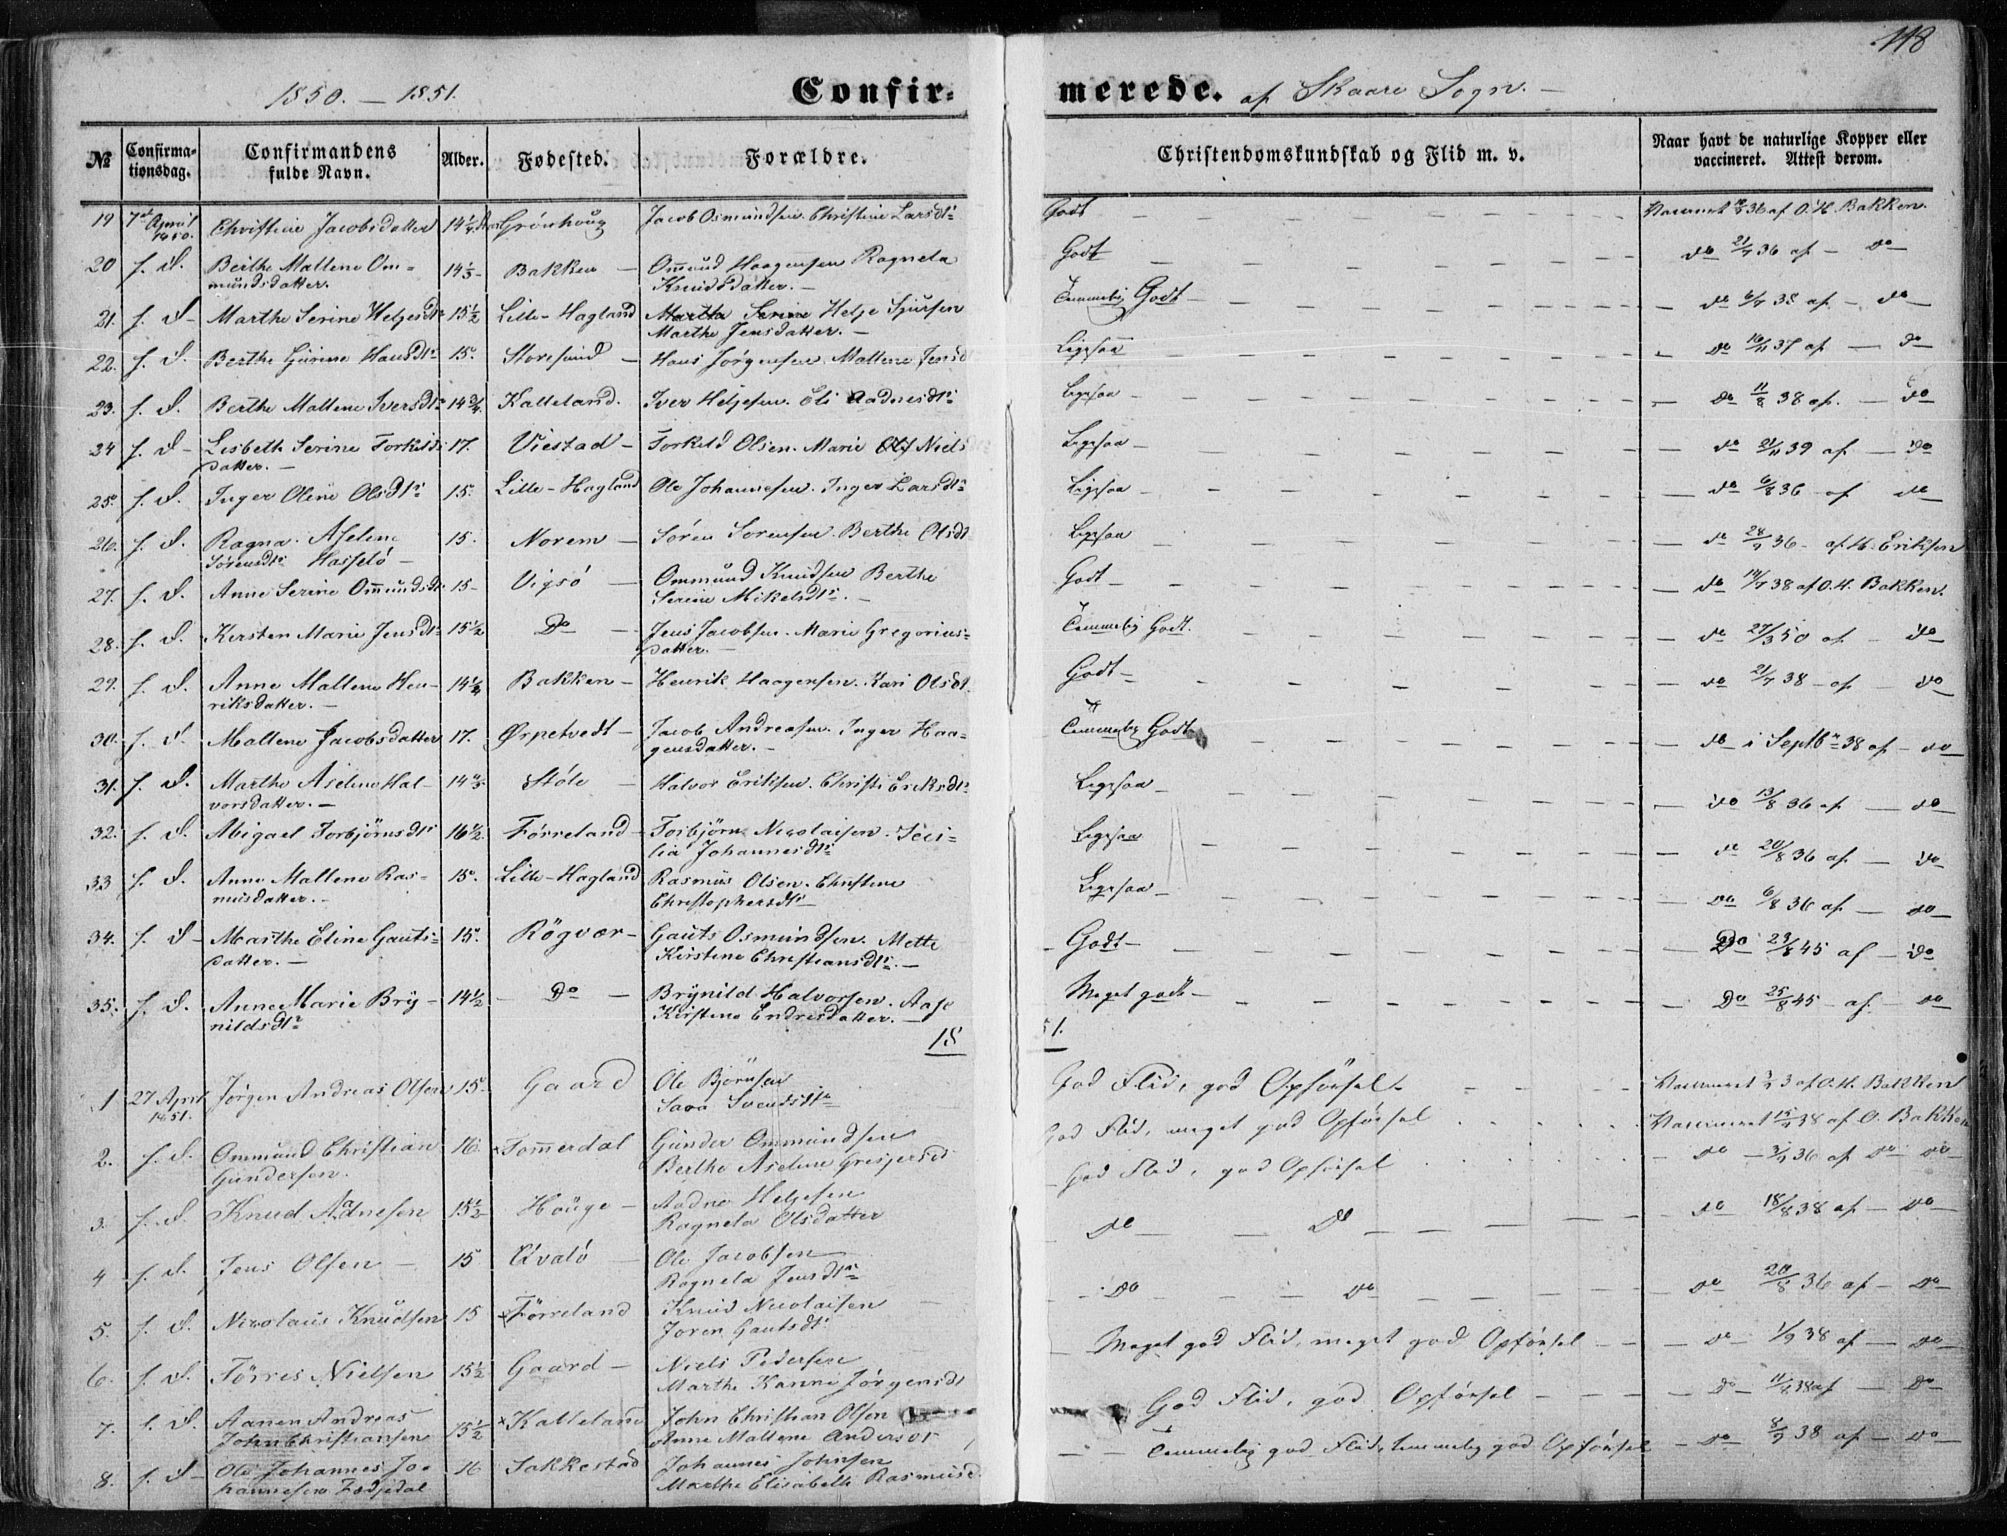 118
1850. — 1851.
Confir-
merede. af Skaare Sogn. —
№
Confirma-
tionsdag.
Confirmandens
fulde Navn.
Alder.
Fødested.
Forældre.
Christendomskundskab og Flid m. v.
Naar havt de naturlige Kopper eller
vaccineret. Attest derom.
19 7de April 1850. Christine Jacobsdatter 14¼ Grönhoug Jacob Osmundsen. Christine Larsdtr Godt Vaccineret 36 af O. H. Bakken.
20 f. D. Berthe Mallene Om-
mundsdatter. 14⅓ Bakken — Ommund Haagensen Ragnela
Knudsdatter. — Godt do 21/7 36 af — do
21. f. D. Marthe Serine Heljesdtr 15½ Lille-Hagland Helje Sjursen
Marthe Jensdatter. — Temmelig Godt — do 38 af — do
22. f. D. Berthe Gurine Hansdtr 15. Storesund — Hans Jörgensen. Mallene Jensd Ligesaa — do 37 af — do
23. f. D. Berthe Mallene Iversdtr 14¾ Kalleland. Iver Heljesen. Eli Aadnesdtr Ligesaa — do 11/8 38 af. — do
24 f. D. Lisbeth Serine Torkilds
datter. — 17. Viestad — Torkild Olsen. Marie Niels Ligesaa — do 39 af — do
25. f. D. Inger Oline Olsdtr 15. Lille-Hagland Ole Johannesen. Inger Larsdtr Ligesaa — do 6/8 36 — af do
26. f. D. Ragna Aselene
Sörensdtr Hasselö — 15. Norem — Sören Sorensen. Berthe Olsdt Ligesaa — do 28/7 36 — af H. Eriksen
27. f. D. Anne Serine Ommundsdt 15 — Vigsö — Ommund Knudsen Berthe
Serine Mikelsdtr. — Godt — do 14/7 38 af O. H. Bakken.
28. f. D. Kersten Marie Jensdtr 15½ Do — Jens Jacobsen. Marie Gregorius-
datter. — Temmelig Godt. — do 27/3 50 af — do
29. f. D. Anne Mallene Hen-
riksdatter. — 14¼ Bakken — Henrik Haagensen. Kari Olsdt. Godt — do 21/7 38 — af — do
30. f. D. Mallene Jacobsdatter 17. Ørpetvedt — Jacob Andreasen. Inger Haa-
gensdatter. — Temmelig Godt — do i Septbr 38 af — do
31. f. D. Marthe Aseline Hal-
vorsdatter. — 14⅔ Stöle — Halvor Eriksen. Christi Eriksdtr Ligesaa — do 13/8 36 af — do
32. f. D. Abigael Torbjörnsdtr 16½ Förreland — Torbjörn Nicolaisen. Sess-
lia Johannesdtr Ligesaa — do 20/8 36 af — do
33 f. D. Anne Mallene Ras-
musdatter. — 15. Lille-Hagland Rasmus Olsen. Christine
Christophersdtr — Ligesaa — do 6/8 36 af — do
34. f. D. Marthe Eline Gauts-
datter. — 15. Rögvær — Gauts Osmundsen. Mette
Kirstine Christiansdtr. — Godt — Do 29/8 45 af — do
35. f. D. Anne Marie Bry-
nildsdtr 14½ — Do — Brynild Halvorsen. Aase
Kirstine Endresdatter. — Meget godt — Do 25/8 45 — af. — do
18
51.
1 27 April 1851. Jörgen Andreas Olsen 15. Gaard Ole Björnsen
Sara Svendsdtr God Flid, god Opförsel. Vaccineret af O. H. Bakken
2. f. D. Ommund Christian
Gundersen. 16. Tommerdal Gunder Ommundsen
Berthe Aseline Gresjersd God Flid, meget god Opförsel Vaccineret 15/9 38 af O. Bakken
3. f. D. Knud Adnesen 15½ Houge — Aadne Heljesen
Ragnela Olsdatter God Flid, god Opförsel do 36 af do do
4 f. D. Jens Olsen — 15 Ole Jacobsen
Ragnela Jensdtr do do do 18/8 38 af — do
5. f. D. Nicolaus Knudsen 15 Förreland Knud Nicolaisen
Joren Gautsdtr do do do 20/8 36 af — do
6. f. D. Törres Nielsen 15½ Gaard — Niels Pedersen
Marthe Karine Jörgensdt Meget god Flid, meget god Opförsel — do 1/9 38 af — do
7. f. D. Aanen Andreas
John Christiansen 15½ Kalleland John Christian Olsen
Anne Mallene Andersdt God Flid, god Opförsel — Do 38 af — Do
8. f. D. Ole Johannes Jo-
hannesen 16 Sakkestad Johannes Johnsen
Marthe Elisabeth Rasmusd. Temmelig god Flid, temmelig god Opförsel — do 8/9 38 af — do